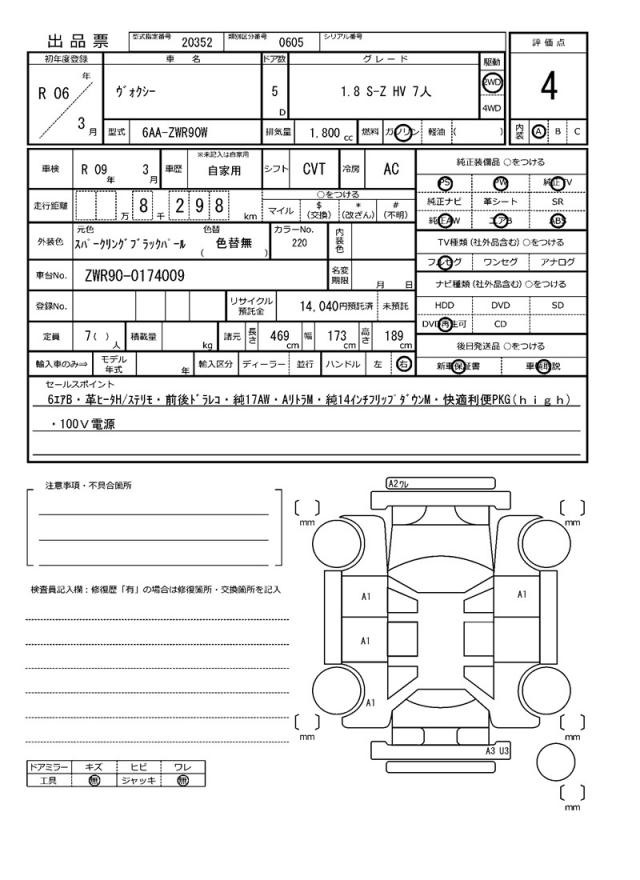 出品票 型式指定番号 20352 類別区分番号 0605 シリアル番号
評価点
初年度登録 車名 ドア数 グレード 駆動
R 06 年 3 月 ヴォクシー 5 D 1.8 S-Z HV 7人 2WD 4WD
4
型式 6AA-ZWR90W 排気量 1,800 cc 燃料 ガソリン 軽油 ( )
内装 A B C
車検 R 09 年 3 月 車歴 ※未記入は自家用 自家用 シフト CVT 冷房 AC
純正装備品 ○をつける
PS PW 純正TV
走行距離 万 8 千 2 9 8 km
○をつける
マイル $ (交換) * (改ざん) # (不明)
純正ナビ 革シート SR
純正AW エアB ABS
外装色 元色 スパークリングブラックパール 色替 ( 色替無 ) カラーNo. 220 内装色
TV種類(社外品含む)○をつける
フルセグ ワンセグ アナログ
車台No. ZWR90-0174009 名変期限 月 日
ナビ種類(社外品含む)○をつける
登録No. リサイクル預託金 14,040円預託済 未預託
HDD DVD SD
DVD再生可 CD
定員 7( ) 人 積載量 kg 諸元 長さ 469 cm 幅 173 cm 高さ 189 cm
後日発送品 ○をつける
輸入車のみ⇒ モデル年式 年 輸入区分 ディーラー 並行 ハンドル 左 右
新車保証書 車輌取説
セールスポイント
6エアB・革ヒータH/ステリモ・前後ドラレコ・純17AW・AリトラM・純14インチフリップダウンM・快適利便PKG(high)
・100V電源
注意事項・不具合箇所
A2ワレ
mm mm
検査員記入欄:修復歴「有」の場合は修復箇所・交換箇所を記入
A1 A1
A1
A1
mm mm
A3 U3
ドアミラー キズ ヒビ ワレ
工具 無 ジャッキ 無
mm